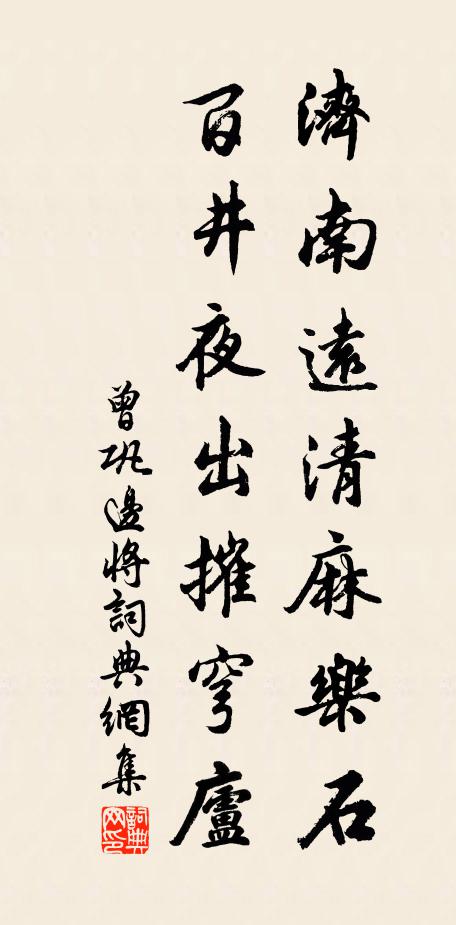 濟南遠清麻樂石
百井夜出摧穹廬
曾鞏邊將詞典網集
詞典网印